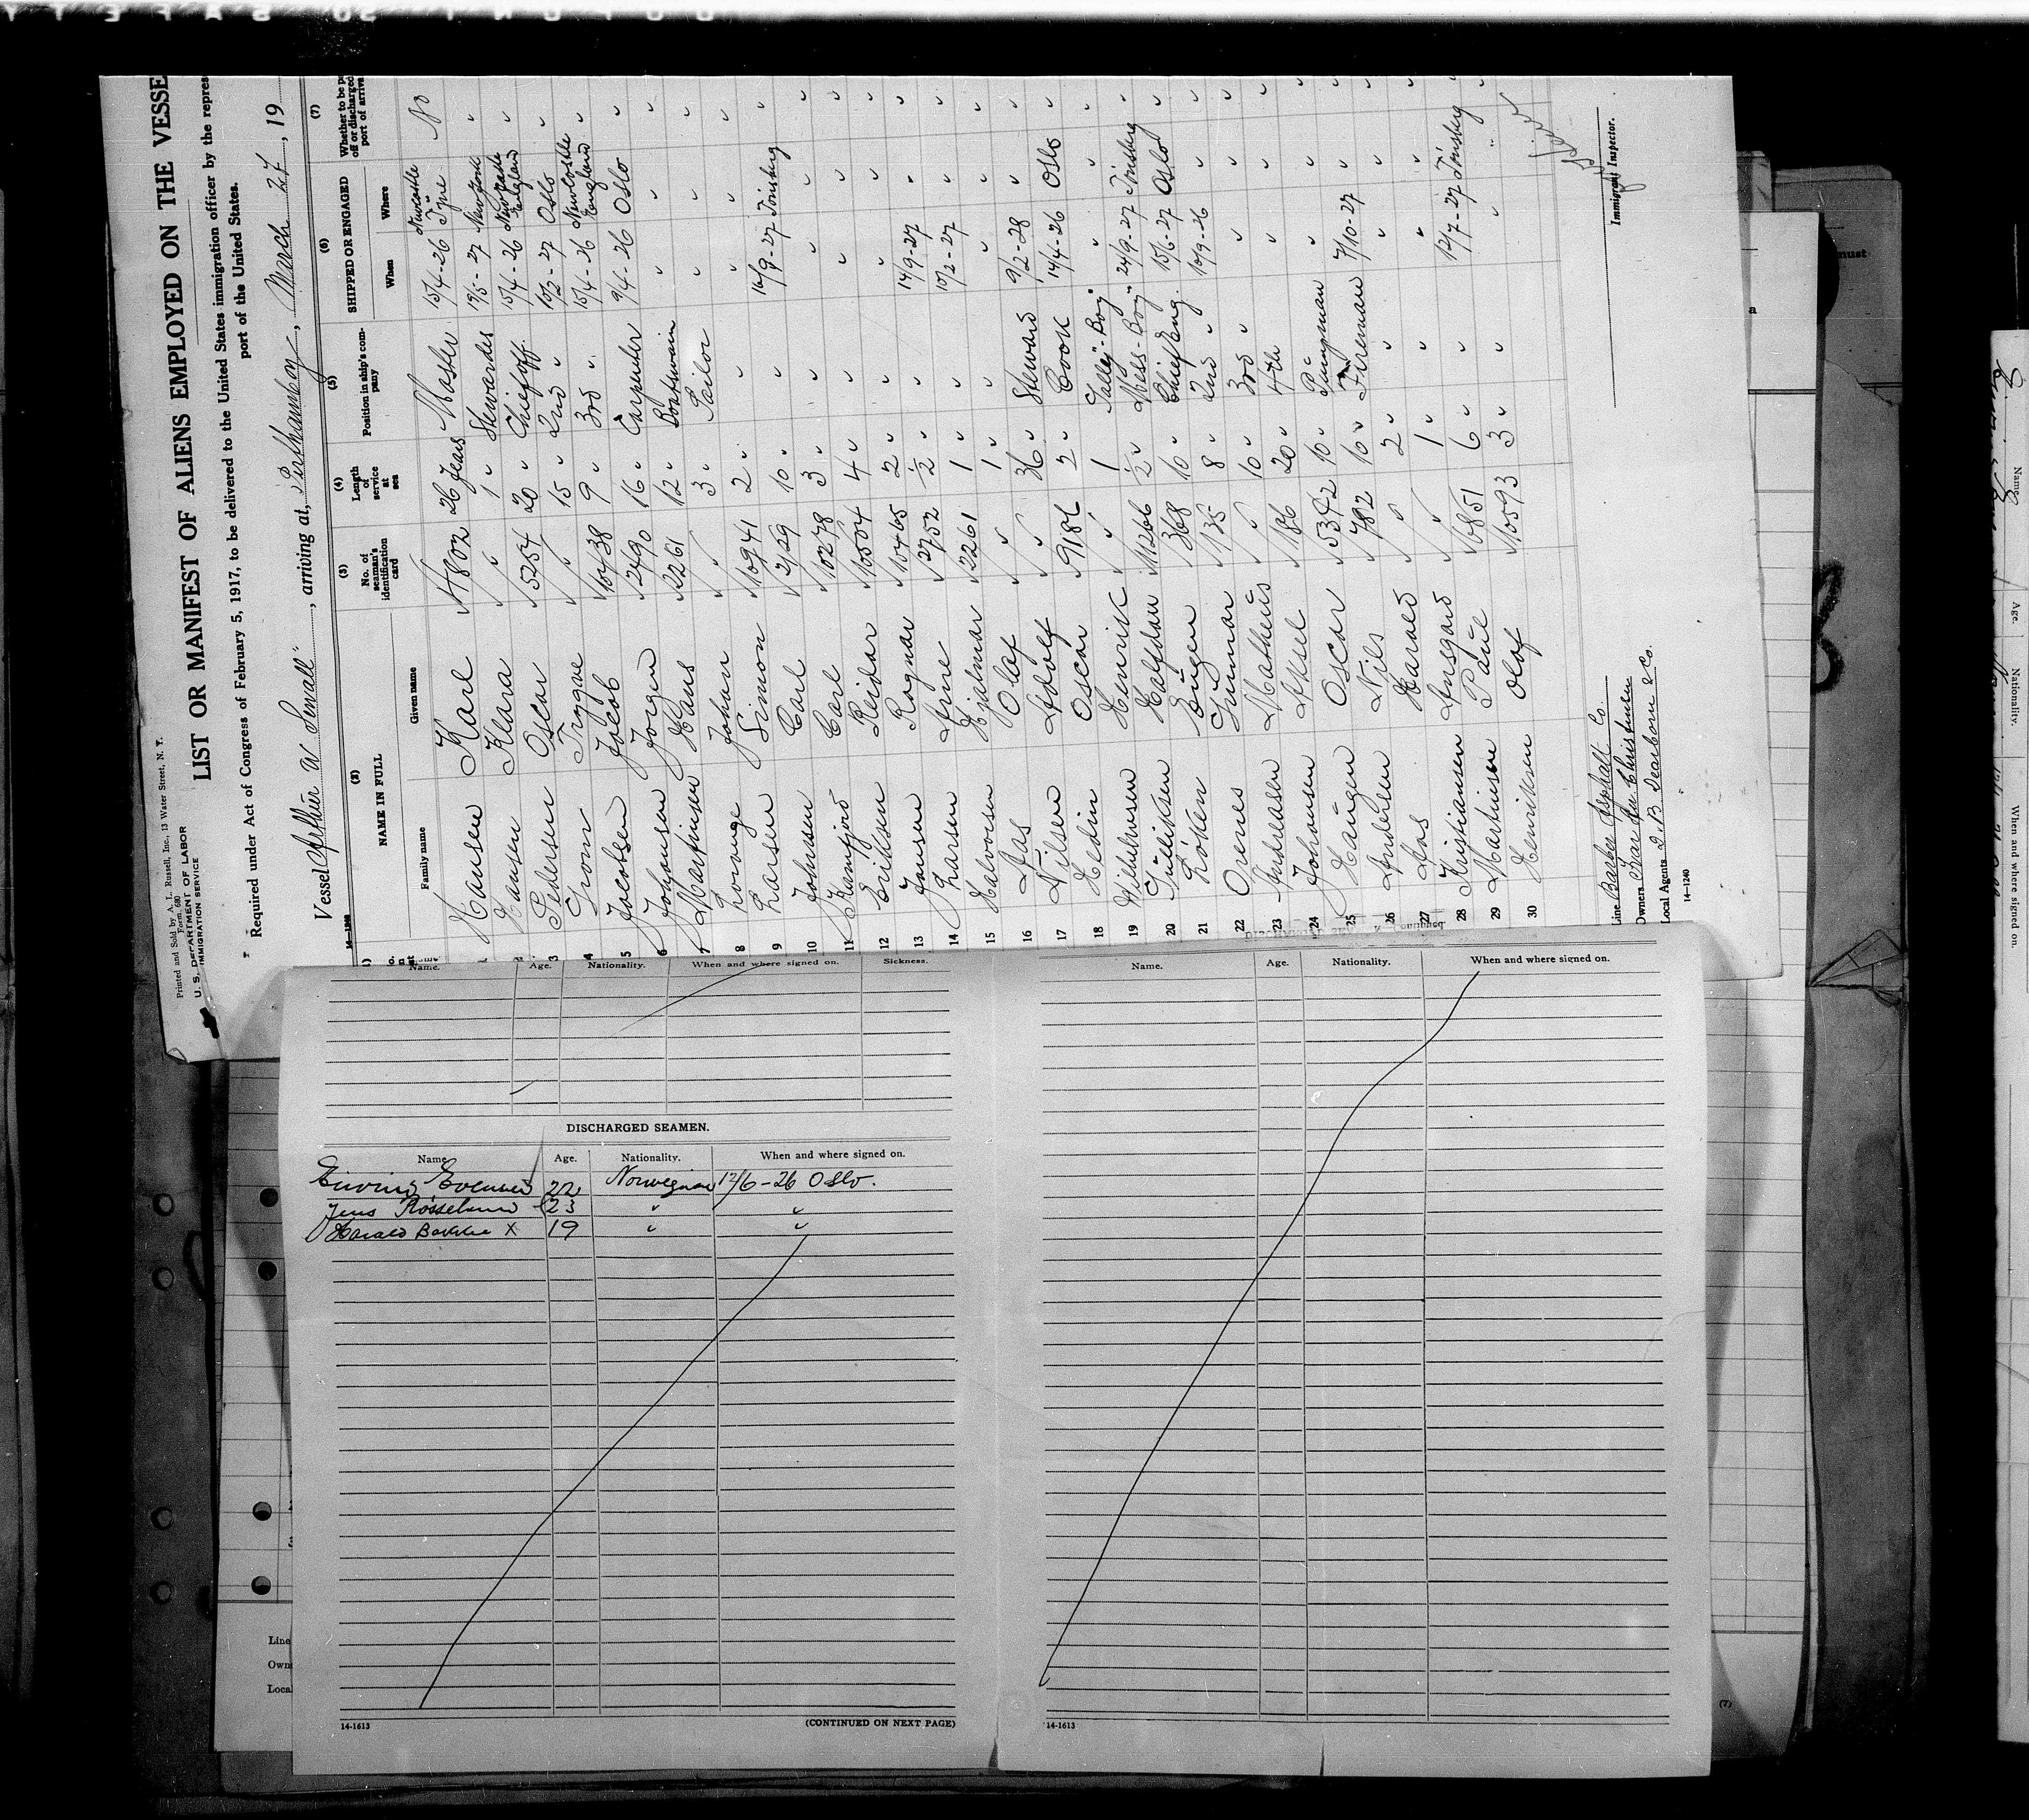 Printed and Sold by A. L. Russell, Inc., 13 Water Street, N. Y.
Form 680
U. S. DEPARTMENT OF LABOR
IMMIGRATION SERVICE
LIST OR MANIFEST OF ALIENS EMPLOYED ON THE VESSE
Required under Act of Congress of February 5, 1917, to be delivered to the United States immigration officer by the repres
port of the United States.
Vessel Arthur W Sewall", arriving at, Perthamboy, March 27, 19
(2) (3) (4) (5) (6) (7)
NAME IN FULL
Family name Given name
No. of seaman's identification card
Length of service at sea
Position in ship's company
SHIPPED OR ENGAGED
When Where
Whether to be p
off or discharged
port of arriva
Hansen Karl 4802 26 years Master 15/4-26 Newcastle Tyne No
2 Hansen Klara " 1 " Stewardess 19/5-27 New York "
3 Pedersen Oscar 5254 20 " Chief off. 15/4-26 Newcastle England "
4 Grom Trygve " 15 " 2nd " 10/2-27 Oslo "
5 Jacobsen Jacob 10438 9 " 3rd " 15/4-26 Newcastle England "
6 Johansen Jorgen 2490 16 " Carpenter 9/4-26 Oslo "
7 Martinsen Hans 2261 12 " Boatswain " " "
8 Johan " 3 " Sailor " " "
9 Larsen Simon 10941 2 " " " " "
10 Johnsen Carl 2129 10 " " 16/9-27 Tönsberg "
11 Carl 10278 3 " " " " "
12 Eriksen Reidar 10504 4 " " " " "
13 Jansen Ragnar 10465 2 " " " " "
14 Larsen Arne 2752 1/2 " " 14/9-27 " "
15 Halvorsen Hjalmar 2261 1 " " 10/2-27 " "
16 Aas Olaf " 1 " " " " "
17 Nilsen Adolf " 36 " Steward 9/2-28 " "
18 Hedin Oscar 9186 2 " Cook 14/4-26 Oslo "
19 Wilhelmsen Henrik " 1 Galley-Boy " " "
20 Tellefsen Halfdan 11266 1/2 " Mess-Boy 24/9-27 Tönsberg "
21 Löken Eugen 368 10 " Chief Eng. 15/6-27 Oslo "
22 Orenes Gunnar 1135 8 " 2nd " 10/9-26 " "
23 Andreasen Matheus " 10 " 3rd " " " "
24 Johansen Aksel 186 20 " 4th " " "
25 Haugen Oscar 5342 10 " Pumpman " " "
26 Andersen Nils 782 10 " Fireman 7/10-27 " "
27 Aas Harald " 2 " " " " "
28 Kristiansen Ansgard " 1 " " " " "
29 Martinsen Paul 6851 6 " " 12/7-27 Tönsberg "
30 Henriksen Olaf 10593 3 " " " " "
Line Barber Asphalt Co.
Owners Christensen
Local Agents J. B Seaborn & Co.
14-1240
Immigrant Inspector.
Name. Age. Nationality. When and where signed on. Sickness.
DISCHARGED SEAMEN.
Name. Age. Nationality. When and where signed on.
22 Norwegian 12/6-26 Oslo.
Jens Rosseland 23 " "
Harald Bakke X 19 " "
14-1613
(CONTINUED ON NEXT PAGE)
Name. Age. Nationality. When and where signed on.
14-1613
Line
Own
Loca
(7)
must
Name.
Age.
Nationality.
When and where signed on.